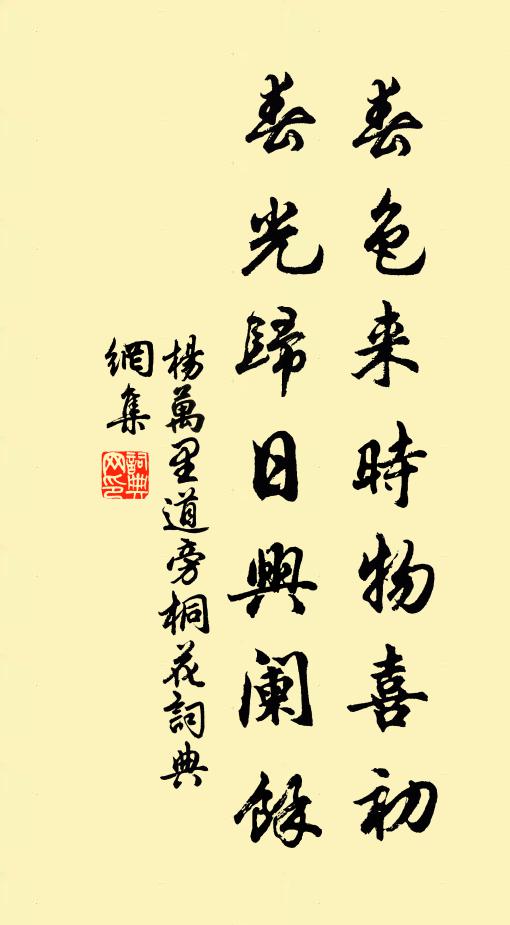 春色来時物喜初
春光歸日興闌餘
楊萬里道旁桐花詞典
網集
詞典
网印